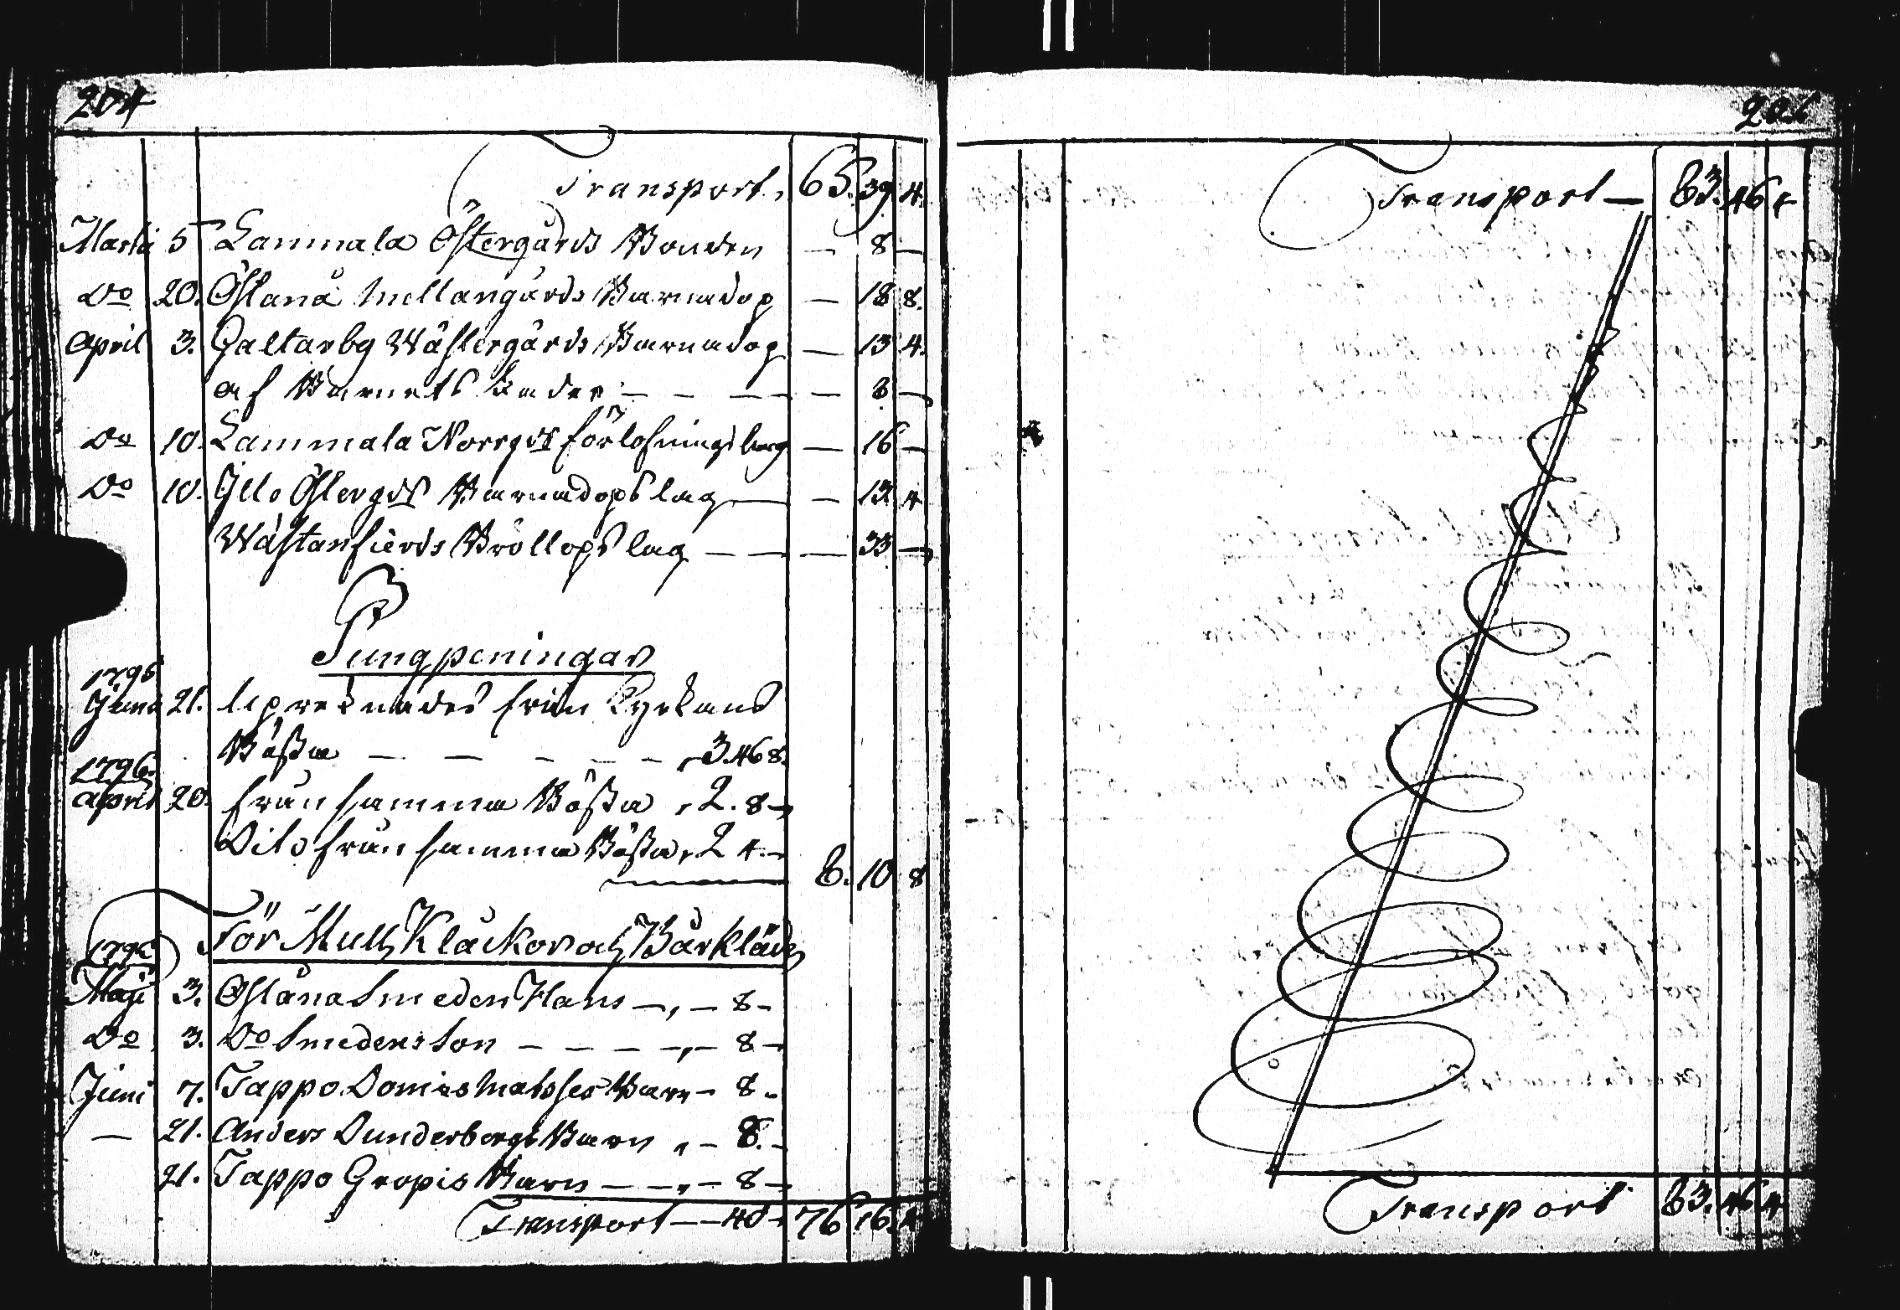 204
Transport, 65. 39 4.
Martii 5 Lammala Östergårds Bonden — 8 —
Do 20. Östanå Mellangårds Barnadop — 18 8.
April 3. Galtarby Wästergårds Barnadop — 13 4.
af Barnets Fader — — — — 8 —
Do 10. Lammala Norrgds förlofningslag — 16 —
Do 10. Östergds Barnadopslag — — 13 4
Wästanfierds Bröllopslag — — — 33 —
Pungpeningar
1795
Junii 21. upräknades från Kyrkans
Bössa — — — — — 3. 46 8.
1796.
April 20. från samma Bössa, 2. 8 —
Dito från samma Bössa, 2 4. —
8. 10 8
För Mull, Klåckor och Bårkläde
1795
Maji 3. Östanå Smeden Hans —, — 8 —
Do 3. Do Smedens Son — — — —, — 8 —
Juni 7. Tappo Barn — 8 —
— 21. Anders Dunderbergs Barn, — 8. —
21. Tappo Gropis Barn — —, — 8 —
Transport — 40 — 76 16. 4
Transport — 83. 46 4
Transport 83. 46 4